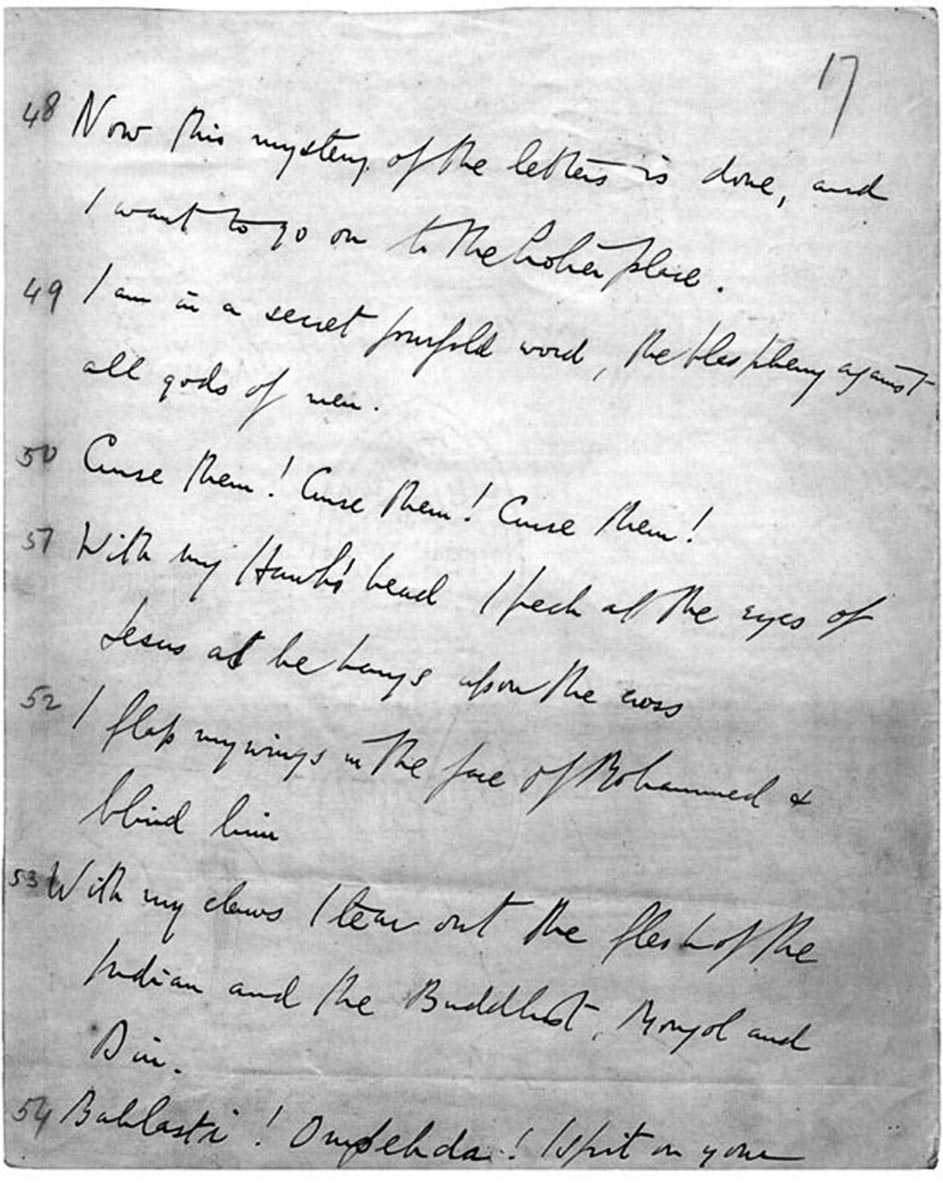 17
48 Now this mystery of the letters is done, and
I want to go on to the holier place.
49 I am in a secret fourfold word, the blasphemy against
all gods of men.
50 Curse them! Curse them! Curse them!
51 With my Hawk's head I peck at the eyes of
Jesus as he hangs upon the cross
52 I flap my wings in the face of Mohammed &
blind him
53 With my claws I tear out the flesh of the
Indian and the Buddhist, Mongol and
Din.
54 Bahlasti! Ompehda! I spit on your